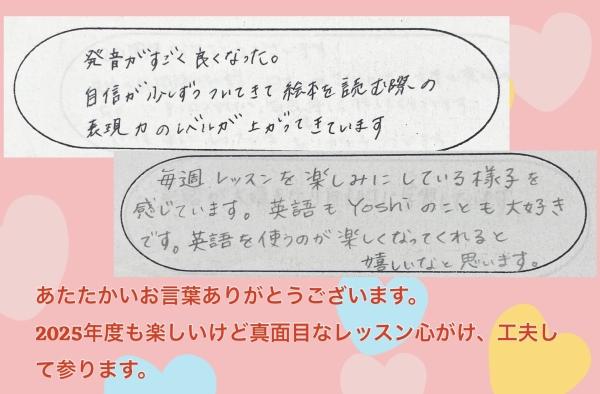 発音がすごく良くなった。
自信が少しずつついてきて絵本を読む際の
表現力のレベルが上がってきています
毎週レッスンを楽しみにしている様子を
感じています。英語もYoshiのことも大好き
です。英語を使うのが楽しくなってくれると
嬉しいなと思います。
あたたかいお言葉ありがとうございます。
2025年度も楽しいけど真面目なレッスン心がけ、工夫し
て参ります。